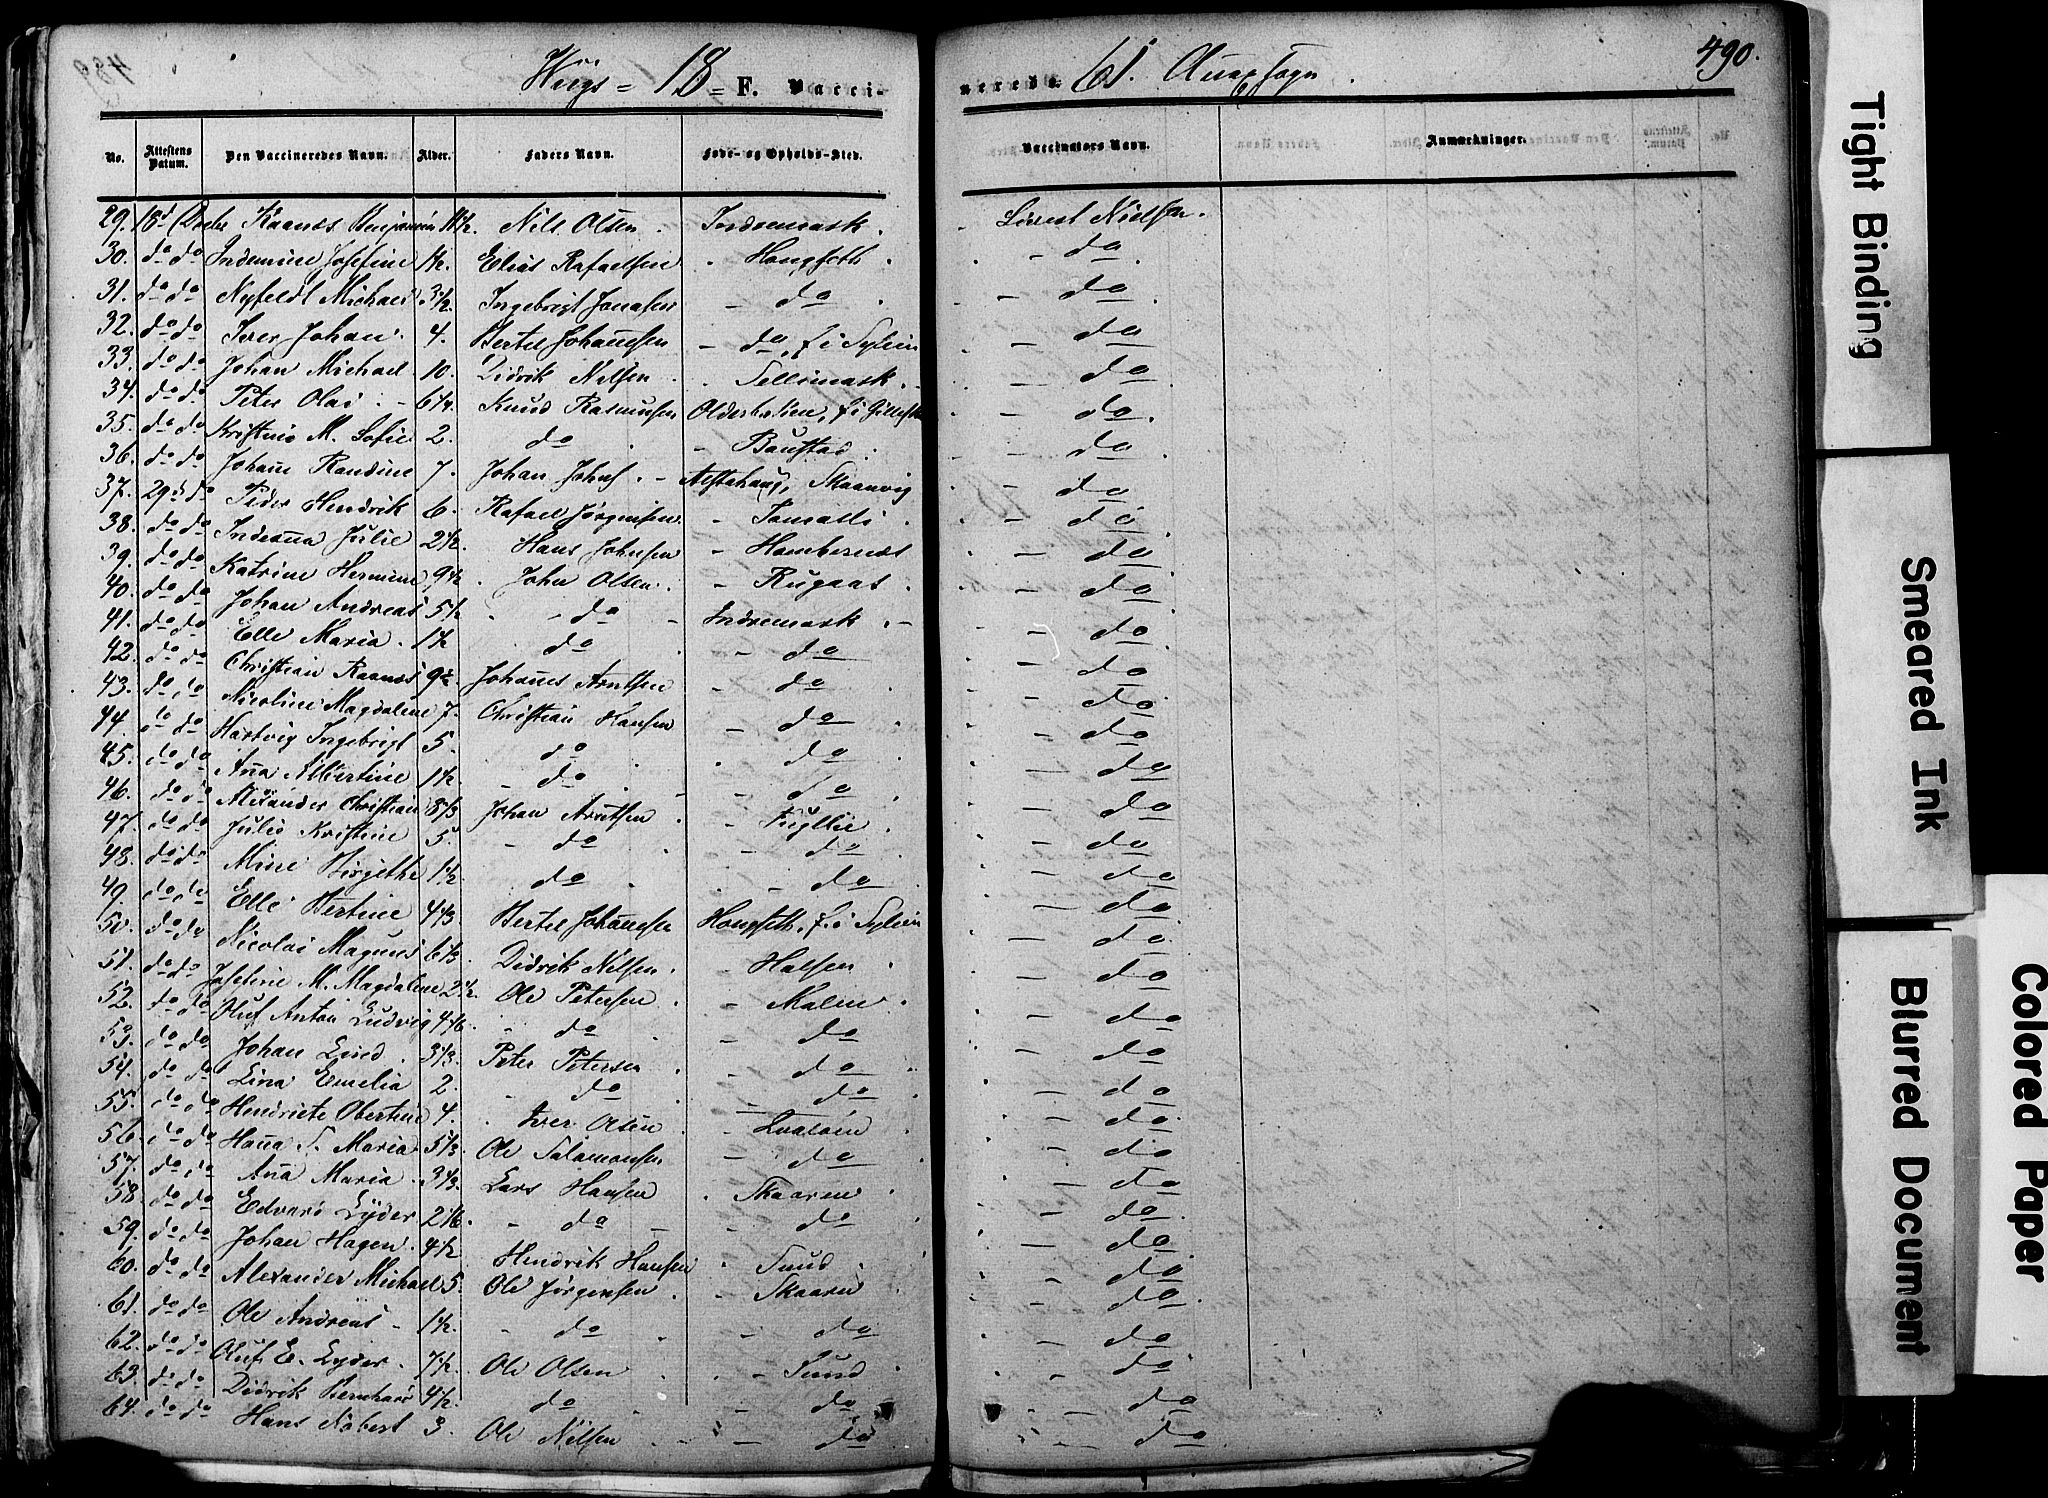 490.
18 F. Vacci-
nerede. 61. Sogn
No. Attestens Datum. Den Vaccineredes Navn. Alder. Faders Navn. Føde- og Opholds-Sted. Vaccinators Navn. Anmærkninger.
29. 15d Raanæs Benjamin Nils Olsen. Indremark. Sivert Nielsen.
30. do do Indemine Josefine 1½. Elias Rafaelsen Hongseth. do
31. do do Nyfeldt Michael 3½ Ingebrigt Jonasen do do
32. do do Iver Johan. 4. Bertel Johannesen do, f. i do
33. do do Johan Michael 10. Didrik Nilsen do
34. do do Peter Olai 6¼. Knud Rasmusen do
35. do do M. Sofie 2. do Baustad. do
36. do do Johan Randine 7. Johan Johns. Alstahaug, Skaanvig do
37. 29d do Peder Hendrik 6. Rafael Jørgensen do
38. do do Indeanna Julie 2½. Hans Johnsen Hambernæs do
39. do do Katrine Hermine 9½. John Olsen. Rugaas do
40. do do Johan Andreas 5½ do Indremark. do
41. do do Elle Maria. 1½ do do do
42. do do Christian Raanæs 9½. Johannes Arntsen do do
43. do do Nicoline Magdalene 7. Christian Hansen do do
44. do do Hartvig Ingebrigt 5. do do do
45. do do Anna Albertine 1½. do do do
46. do do Alexander Christian Johan Arntsen Fuglli do
47. do do Julie Kristine 5. do do do
48. do do Mine Birgithe 1½. do do do
49. do do Elle Bertine 4⅓. Bertel Johannesen Hongseth, f. i do
50. do do Nicolai Magnus 6⅓. Didrik Nilsen. Halsen do
51. do do Josefine M. Magdalene 2½. Ole Petersen Malm. do
52. do do Oluf Anton Ludvig do do do
53. do do Johan 3⅓. Peter Petersen do do
54. do do Lina Emelia 2. do do do
55. do do Hendriete Obertine 4. Iver Olsen do
56. do do Hanna S. Maria 5⅓ Ole Salamonsen do do
57. do do Anna Maria. 3⅓. Lars Hansen Skaaren do
58. do do Edvard Lyder do do do
59. do do Johan Hagen. 4½ Hendrik Hansen Sund. do
60. do do Alexander Michael 5. Ole Jørgensen Skaaren do
61. do do Ole Andreas 1½. do do do
62. do do Oluf E. Lyder. 7½. Ole Olsen Sund do
63. do do Didrik Bernhard 4½ do do do
64. do do Hans Nobert 3. Ole Nilsen do do
Tight Binding
Smeared Ink
Blurred Document
Colored Paper